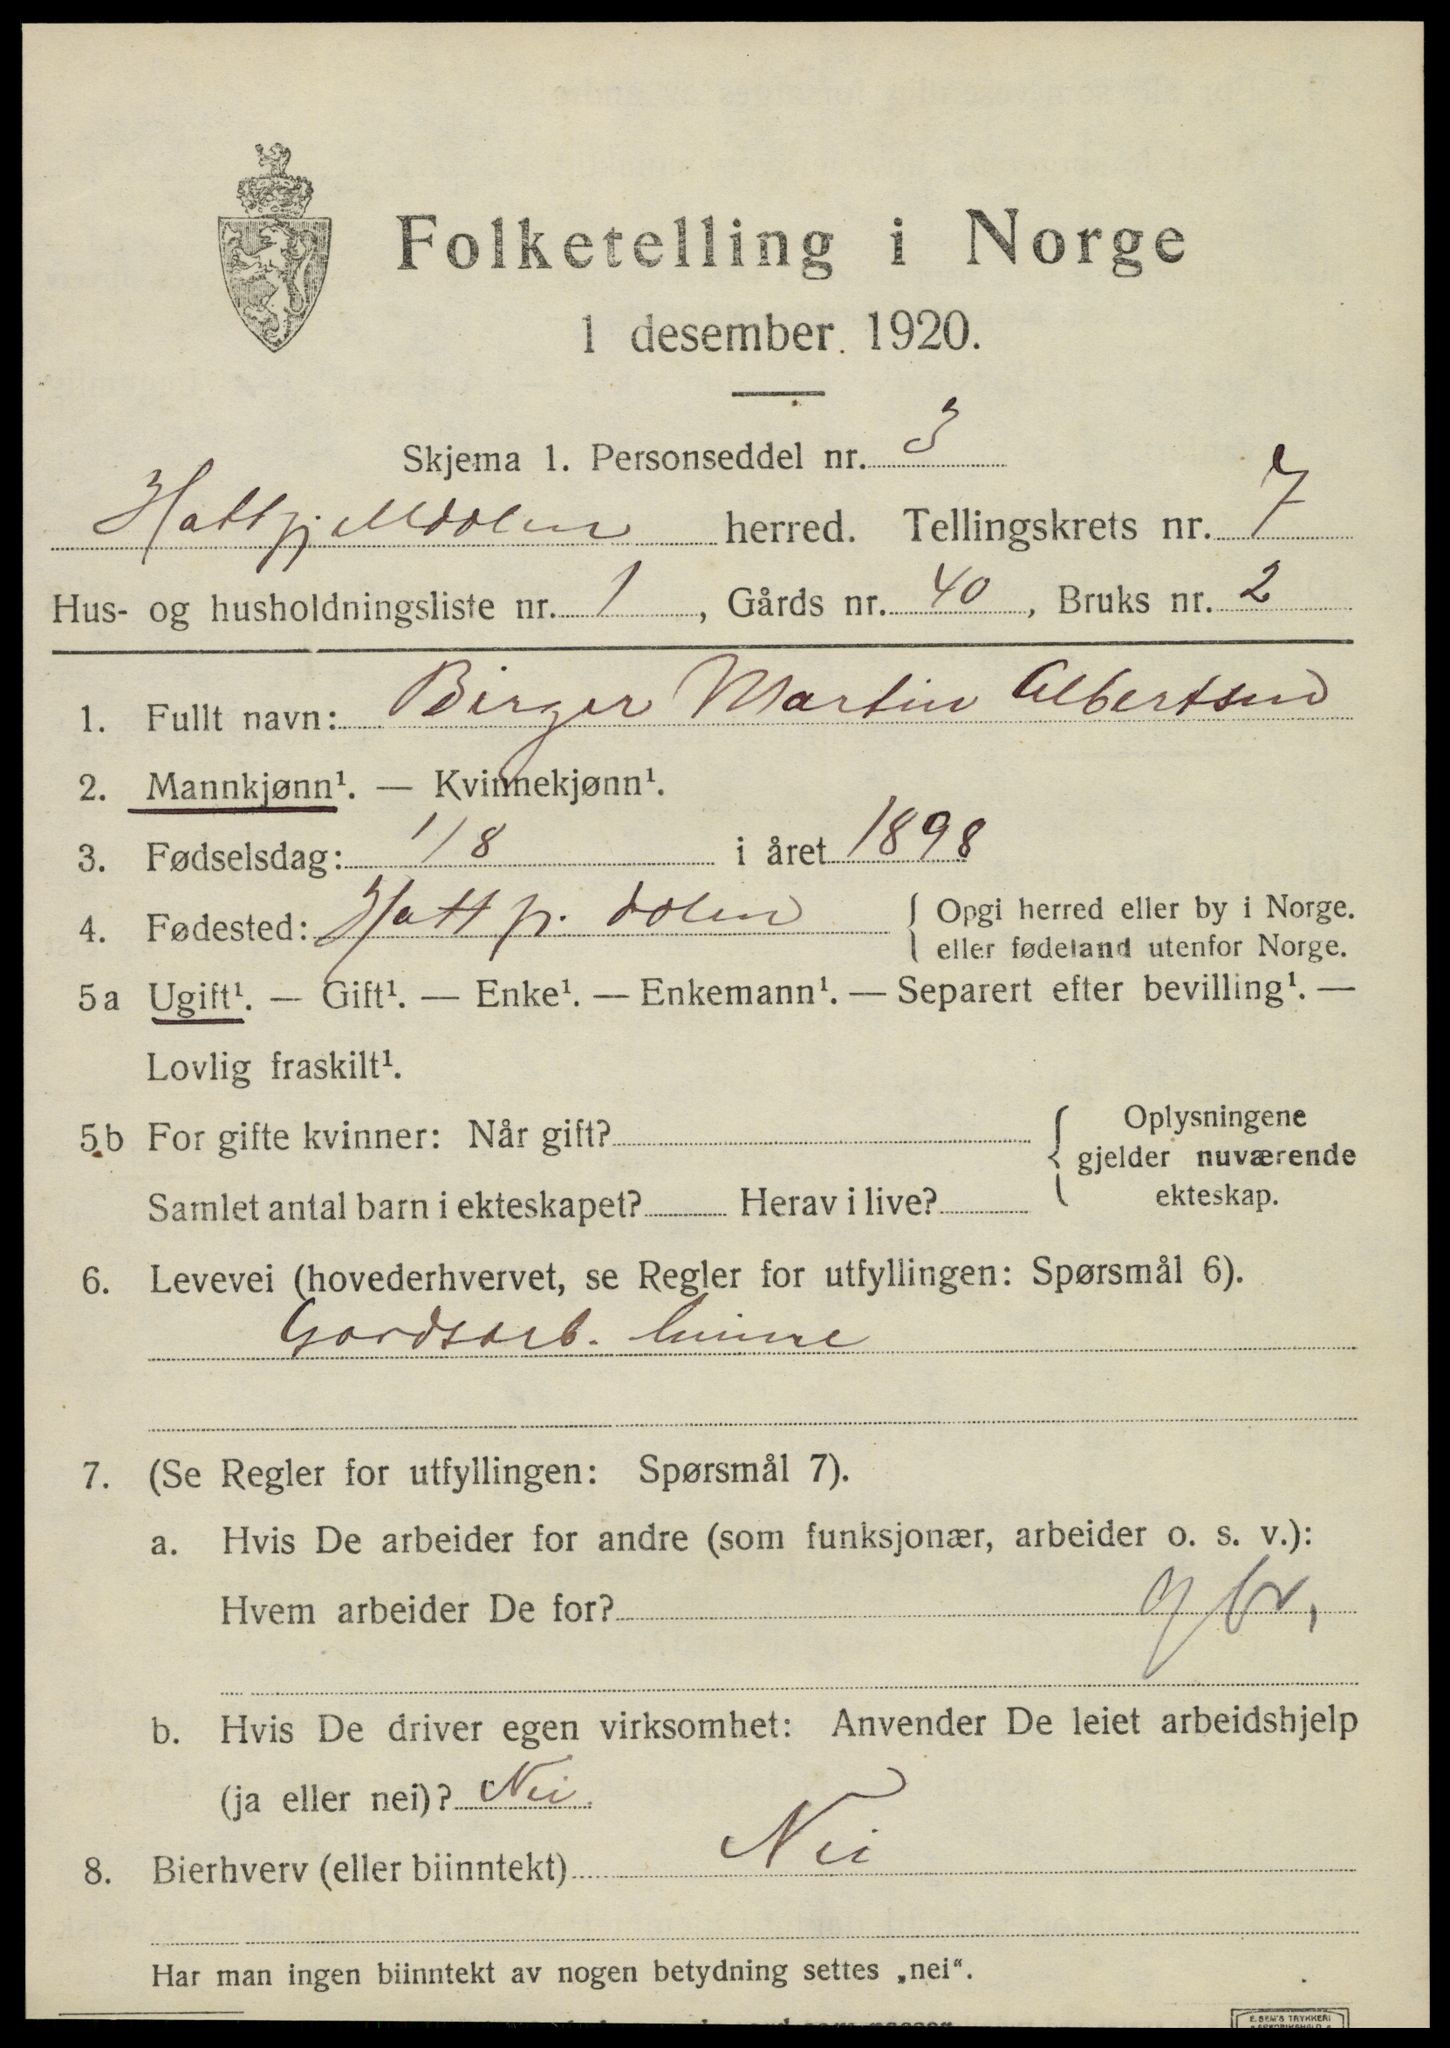 Folketelling i Norge
1 desember 1920.
Skjema 1. Personseddel nr. 3
Hattfjelldalen herred. Tellingskrets nr. 7
Hus- og husholdningsliste nr. 1, Gårds nr. 40, Bruks nr. 2
1. Fullt navn: Birger Martin Albertsen
2. Mannkjønn¹. — Kvinnekjønn¹.
3. Fødselsdag: 1/8 i året 1898
4. Fødested: Hattfj. dalen { Opgi herred eller by i Norge.
eller fødeland utenfor Norge.
5a Ugift¹. — Gift¹. — Enke¹. — Enkemann¹. — Separert efter bevilling¹. —
Lovlig fraskilt¹.
5b For gifte kvinner: Når gift? { Oplysningene
gjelder nuværende
ekteskap.
Samlet antal barn i ekteskapet? Herav i live?
6. Levevei (hovederhvervet, se Regler for utfyllingen: Spørsmål 6).
Gardsarb. hime
7. (Se Regler for utfyllingen: Spørsmål 7).
a. Hvis De arbeider for andre (som funksjonær, arbeider o. s. v.):
Hvem arbeider De for? gbr,
b. Hvis De driver egen virksomhet: Anvender De leiet arbeidshjelp
(ja eller nei)? Nei.
8. Bierhverv (eller biinntekt) Nei
Har man ingen biinntekt av nogen betydning settes „nei“.
E. SEM'S TRYKKERI